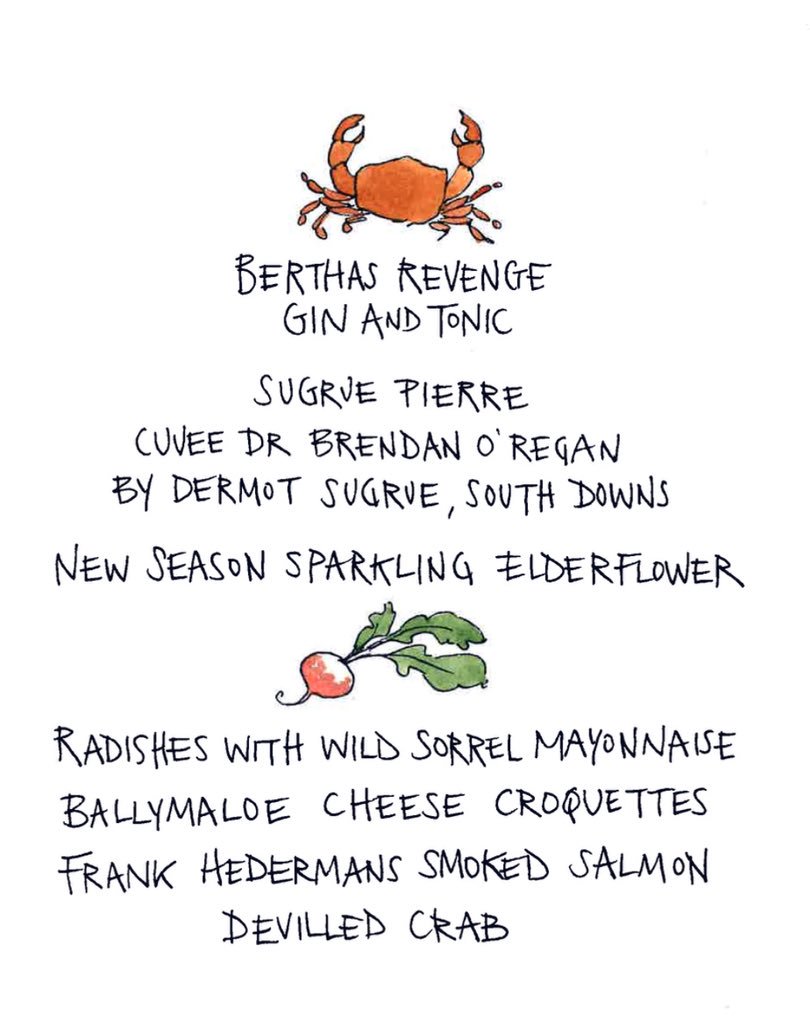 BERTHAS REVENGE
GIN AND TONIC
SUGRUE PIERRE
CUVEE DR BRENDAN O'REGAN
BY DERMOT SUGRUE, SOUTH DOWNS
NEW SEASON SPARKLING ELDERFLOWER
RADISHES WITH WILD SORREL MAYONNAISE
BALLYMALOE CHEESE CROQUETTES
FRANK HEDERMANS SMOKED SALMON
DEVILLED CRAB